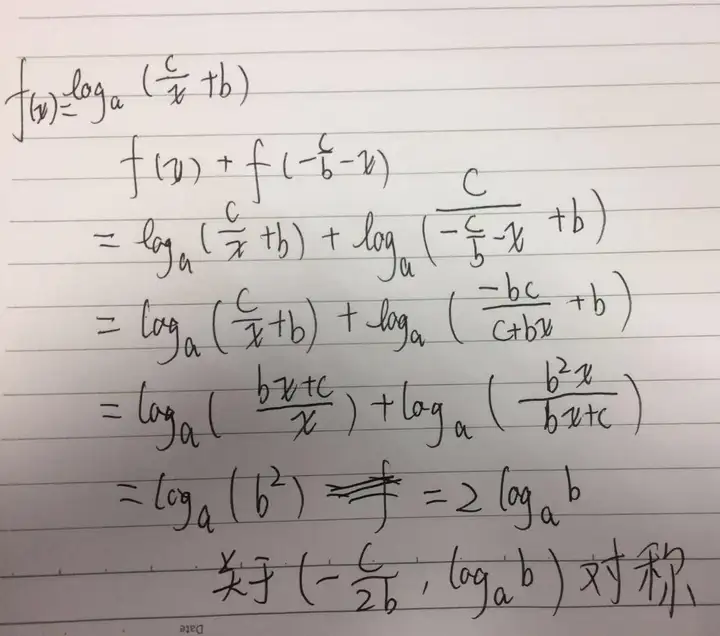 f(x)=log_a (c/x +b)
f(x) + f(-c/b -x)
= log_a (c/x +b) + log_a (c/(-c/b -x) +b)
= log_a (c/x +b) + log_a (-bc/(c+bx) +b)
= log_a ((bx+c)/x) + log_a (b²x/(bx+c))
= log_a (b²) = 2 log_a b
关于 (-c/2b , log_a b) 对称
Date